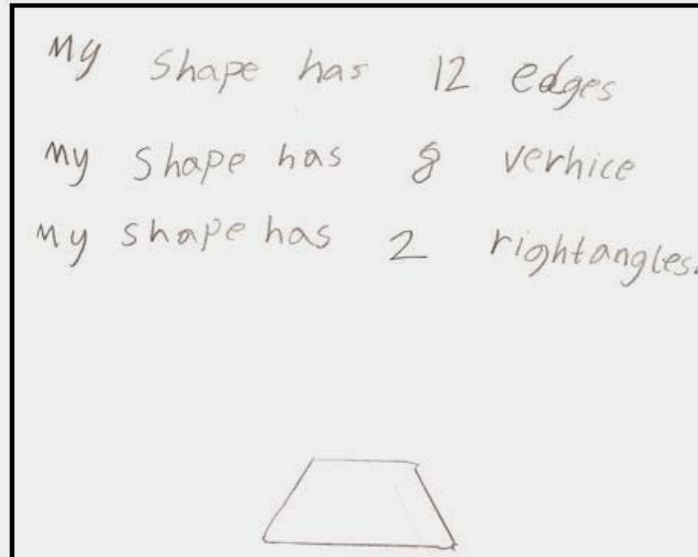 My shape has 12 edges
My shape has 8 verhice
My shape has 2 rightangles.